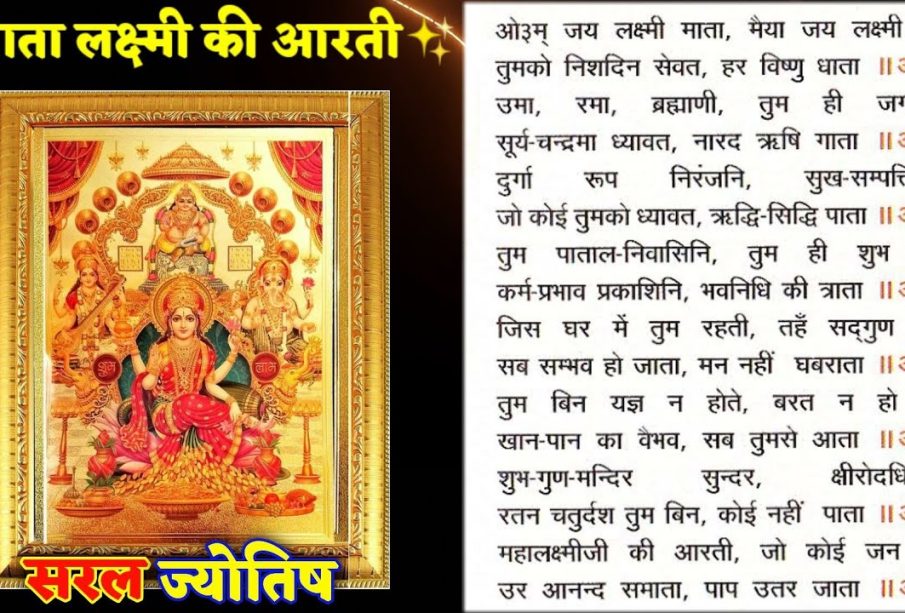 माता लक्ष्मी की आरती
शुभ
लाभ
सरल ज्योतिष
ओ३म् जय लक्ष्मी माता, मैया जय लक्ष्मी
तुमको निशदिन सेवत, हर विष्णु धाता ॥
उमा, रमा, ब्रह्माणी, तुम ही
सूर्य-चन्द्रमा ध्यावत, नारद ऋषि गाता ॥
दुर्गा रूप निरंजनि, सुख-सम्पत्ति
जो कोई तुमको ध्यावत, ऋद्धि-सिद्धि पाता ॥
तुम पाताल-निवासिनि, तुम ही शुभ
कर्म-प्रभाव प्रकाशिनि, भवनिधि की त्राता ॥
जिस घर में तुम रहती, तहँ सद्‌गुण
सब सम्भव हो जाता, मन नहीं घबराता ॥
तुम बिन यज्ञ न होते, बरत न हो
खान-पान का वैभव, सब तुमसे आता ॥
शुभ-गुण-मन्दिर सुन्दर, क्षीरोदधि
रतन चतुर्दश तुम बिन, कोई नहीं पाता ॥
महालक्ष्मीजी की आरती, जो कोई जन
उर आनन्द समाता, पाप उतर जाता ॥